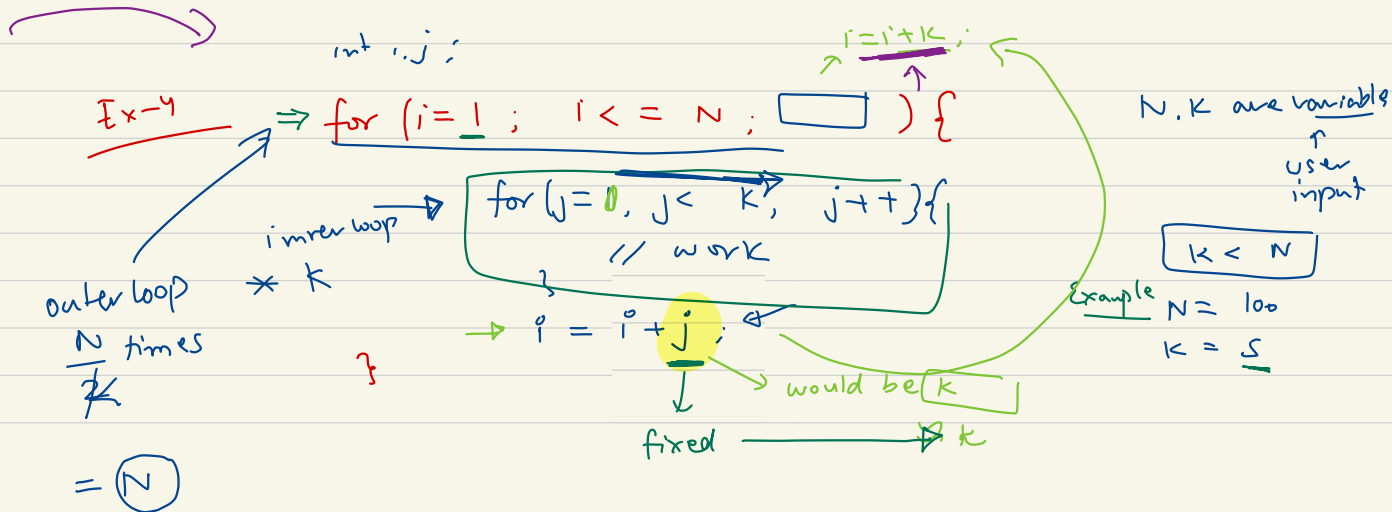 int i,j;
i=i+k;
Ex-4 ⇒ for (i=1; i<=N; ){
N.K are variable
user
input
for(j=0, j< k, j++){
innerloop
// work
}
k < N
outerloop * k
N/k times
i = i + j;
Example N= 100
K = 5
}
would be k
fixed → k
= N